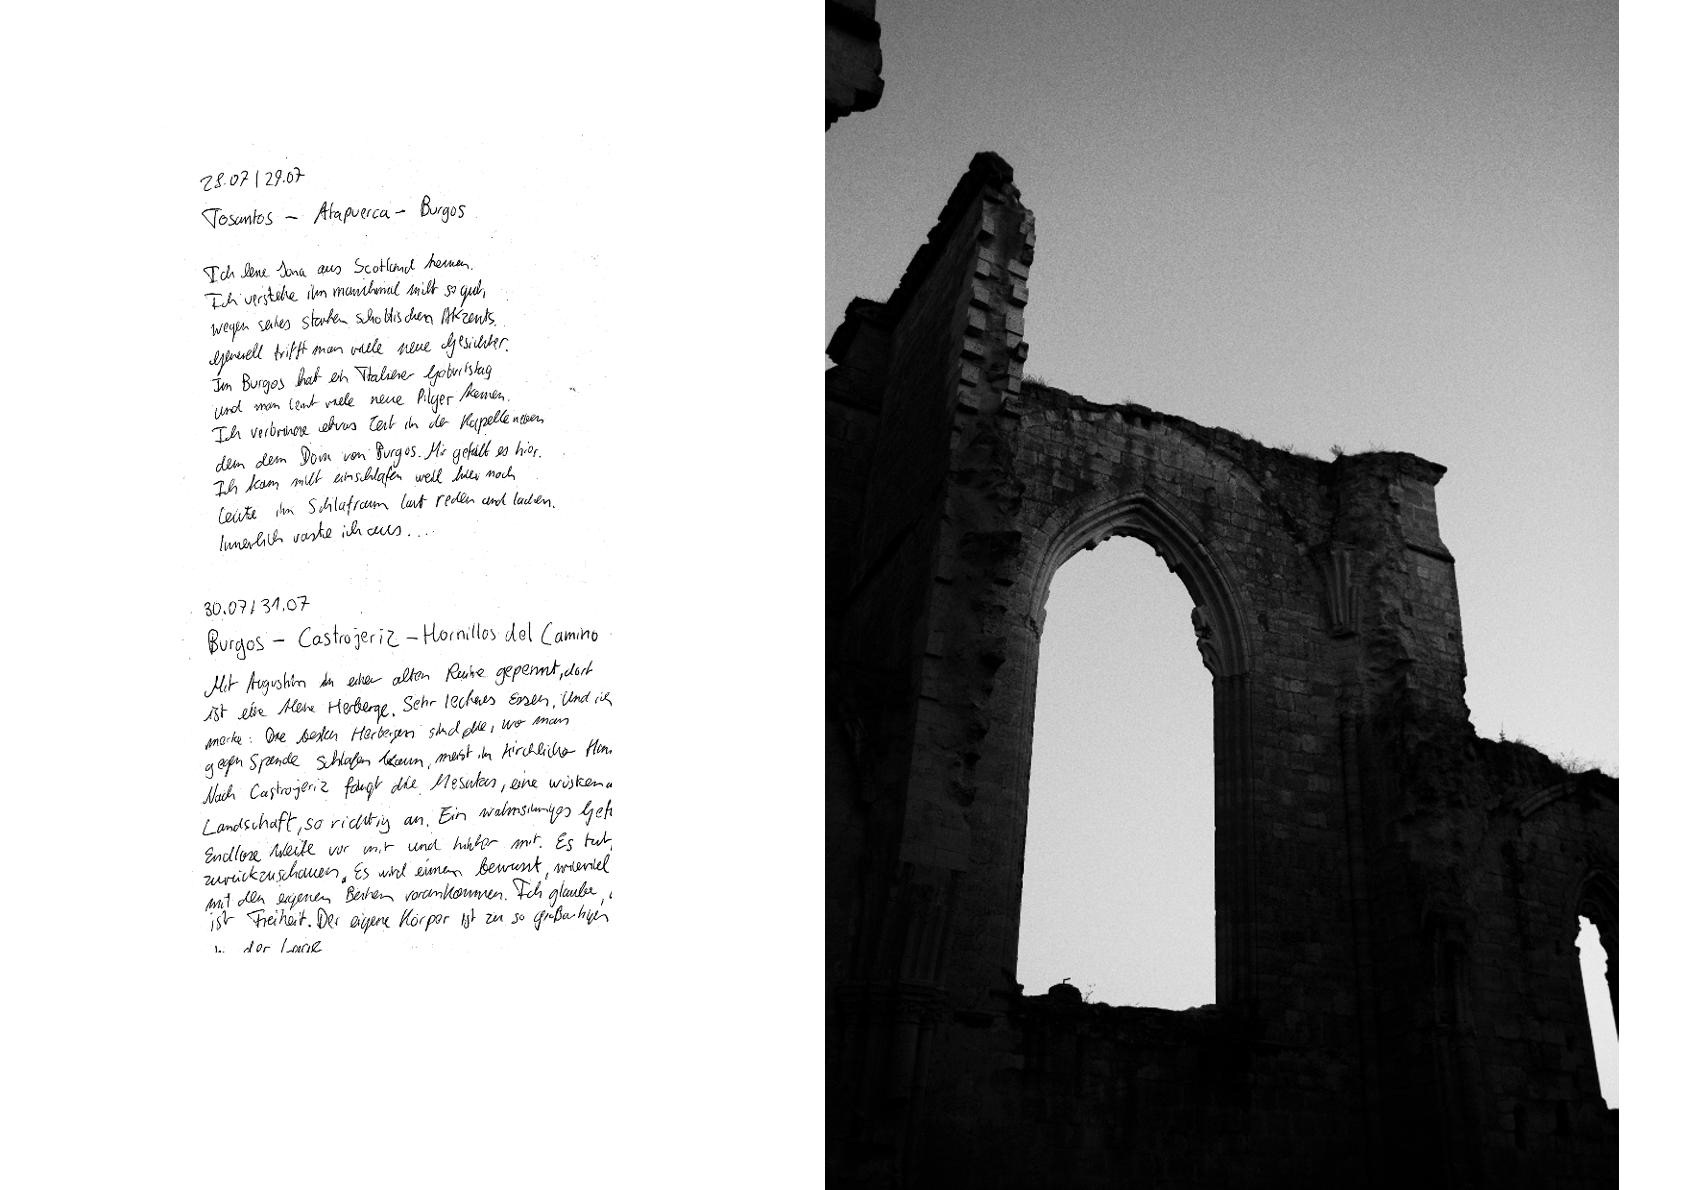 28.07 | 29.07
Tosantos – Atapuerca – Burgos
Ich lerne Jona aus Scotland kennen.
Ich verstehe ihn manchmal nicht so gut,
wegen seines starken schottischen Akzents.
Generell trifft man viele neue Gesichter.
Im Burgos hat ein Italiener Geburtstag
und man lernt viele neue Pilger kennen.
Ich verbringe etwas Zeit in der Kapelle neben
dem dem Dom von Burgos. Mir gefällt es hier.
Ich kann nicht einschlafen weil hier noch
Leute im Schlafraum laut reden und lachen.
Innerlich raste ich aus...
30.07 | 31.07
Burgos – Castrojeriz – Hornillos del Camino
Mit Augustin in einer alten Ruine gepennt, dort
ist eine kleine Herberge. Sehr leckeres Essen. Und ich
merke: Die besten Herbergen sind die, wo man
gegen Spende schlafen kann, meist in kirchlicher
Nach Castrojeriz fängt die Mesetas, eine
Landschaft, so richtig an. Ein wahnsinniges
Endlose Weite vor mir und hinter mir. Es tut
zurückzuschauen. Es wird einem bewusst, wieviel
mit den eigenen Beinen vorankommen. Ich glaube,
ist Freiheit. Der eigene Körper ist zu so großartigen
in der Lage